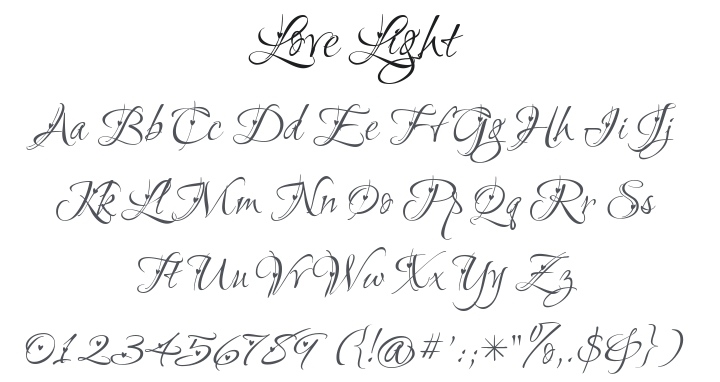 Love Light
Aa Bb Cc Dd Ee Ff Gg Hh Ii Jj
Kk Ll Mm Nn Oo Pp Qq Rr Ss
Tt Uu Vv Ww Xx Yy Zz
0123456789 ({!@#':;*"%,.$&})